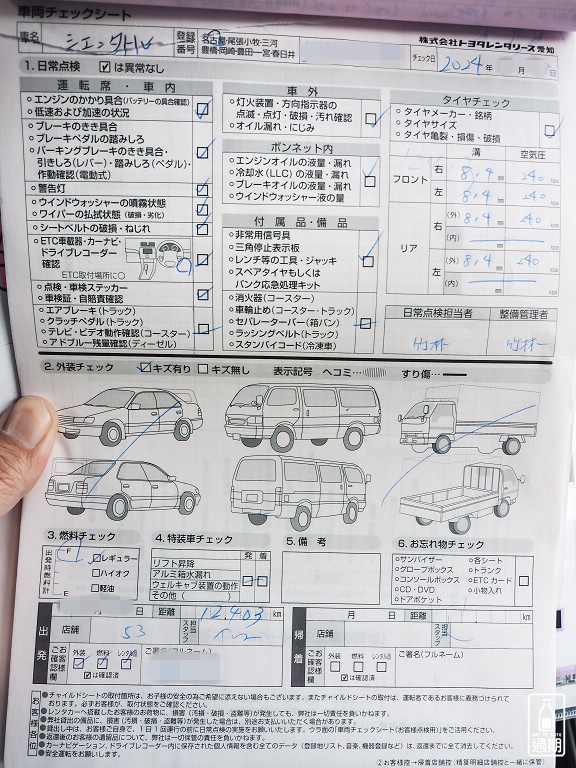 車両チェックシート
車名
登録番号
名古屋・尾張小牧・三河
豊橋・岡崎・豊田・一宮・春日井
株式会社トヨタレンタリース愛知
チェック日 2024年 月 日
1. 日常点検 ☑は異常なし
運転席・車内
○エンジンのかかり具合(バッテリーの具合確認)
○低速および加速の状況
○ブレーキのきき具合
○ブレーキペダルの踏みしろ
○パーキングブレーキのきき具合・
引きしろ(レバー)・踏みしろ(ペダル)・
作動確認(電動式)
○警告灯
○ウインドウォッシャーの噴霧状態
○ワイパーの払拭状態(破損・劣化)
○シートベルトの破損・ねじれ
○ETC車載器・カーナビ・
ドライブレコーダー
確認
ETC取付場所に○
○点検・車検ステッカー
○車検証・自賠責確認
○エアブレーキ(トラック)
○クラッチペダル(トラック)
○テレビ・ビデオ動作確認(コースター)
○アドブルー残量確認(ディーゼル)
車外
○灯火装置・方向指示器の
点滅・点灯・破損・汚れ確認
○オイル漏れ・にじみ
ボンネット内
○エンジンオイルの液量・漏れ
○冷却水(LLC)の液量・漏れ
○ブレーキオイルの液量・漏れ
○ウインドウォッシャー液の量
付属品・備品
○非常用信号具
○三角停止表示板
○レンチ等の工具・ジャッキ
○スペアタイヤもしくは
パンク応急処理キット
○消火器(コースター)
○車輪止め(コースター・トラック)
○セパレーターバー(箱バン)
○ラッシングベルト(トラック)
○スタンバイコード(冷凍車)
タイヤチェック
○タイヤメーカー・銘柄
○タイヤサイズ
○タイヤ亀裂・損傷・破損
溝 空気圧
フロント 右 8.4mm 240
左 8.4mm 240
リア 右 (外) 8.4mm 240
(内)
左 (外) 8.4mm 240
(内)
日常点検担当者 整備管理者
竹林 竹林
2. 外装チェック ☑キズ有り □キズ無し 表示記号 ヘコミ… すり傷…
3. 燃料チェック
出発時燃料計
F
E
☑レギュラー
□ハイオク
□軽油
4. 特装車チェック
発 着
リフト昇降
アルミ箱水漏れ
ウェルキャブ装置の動作
その他(
5. 備考
6. お忘れ物チェック
○サンバイザー ○各シート
○グローブボックス ○トランク
○コンソールボックス ○ETCカード
○CD・DVD ○小物入れ
○ドアポケット
出発
月 日 距離 12403km
店舗 53 担当スタッフ
ご確認欄 お客様 外装 燃料 レンタル証
☑は確認済
ご署名(フルネーム)
帰着
月 日 距離 km
店舗 担当スタッフ
ご確認欄 お客様 外装 燃料 レンタル証
☑は確認済
ご署名(フルネーム)
お客様各位
●チャイルドシートの取付箇所は、お子様の安全の為ご希望に添えない場合もございます。またチャイルドシートの取付は、運転者であるお客様に義務づけられております。
●レンタカーへ搭載したお客様のお荷物に、損害(汚損・破損・盗難等)が発生しても、弊社は一切責任を負いかねます。
●弊社貸出の備品に、損害(汚損・破損・盗難等)が発生した場合は、別途お支払いいただく場合があります。
●貸出し中は、お客様ご自身で、1日1回運行の前に日常点検の実施をお願いいたします。ウラ面の「車両チェックシート(お客様点検用)」をご活用ください。
●返還後のお客様の遺留品について、弊社は一切保管の責任を負いかねます。
●カーナビゲーション、ドライブレコーダー内に保存された個人情報を含む全てのデータ(登録地リスト、音楽、機器登録など)は、返還までに全て消去してください。
②お客様控→帰着店舗控(精算明細店舗控と一緒に保管)
週期